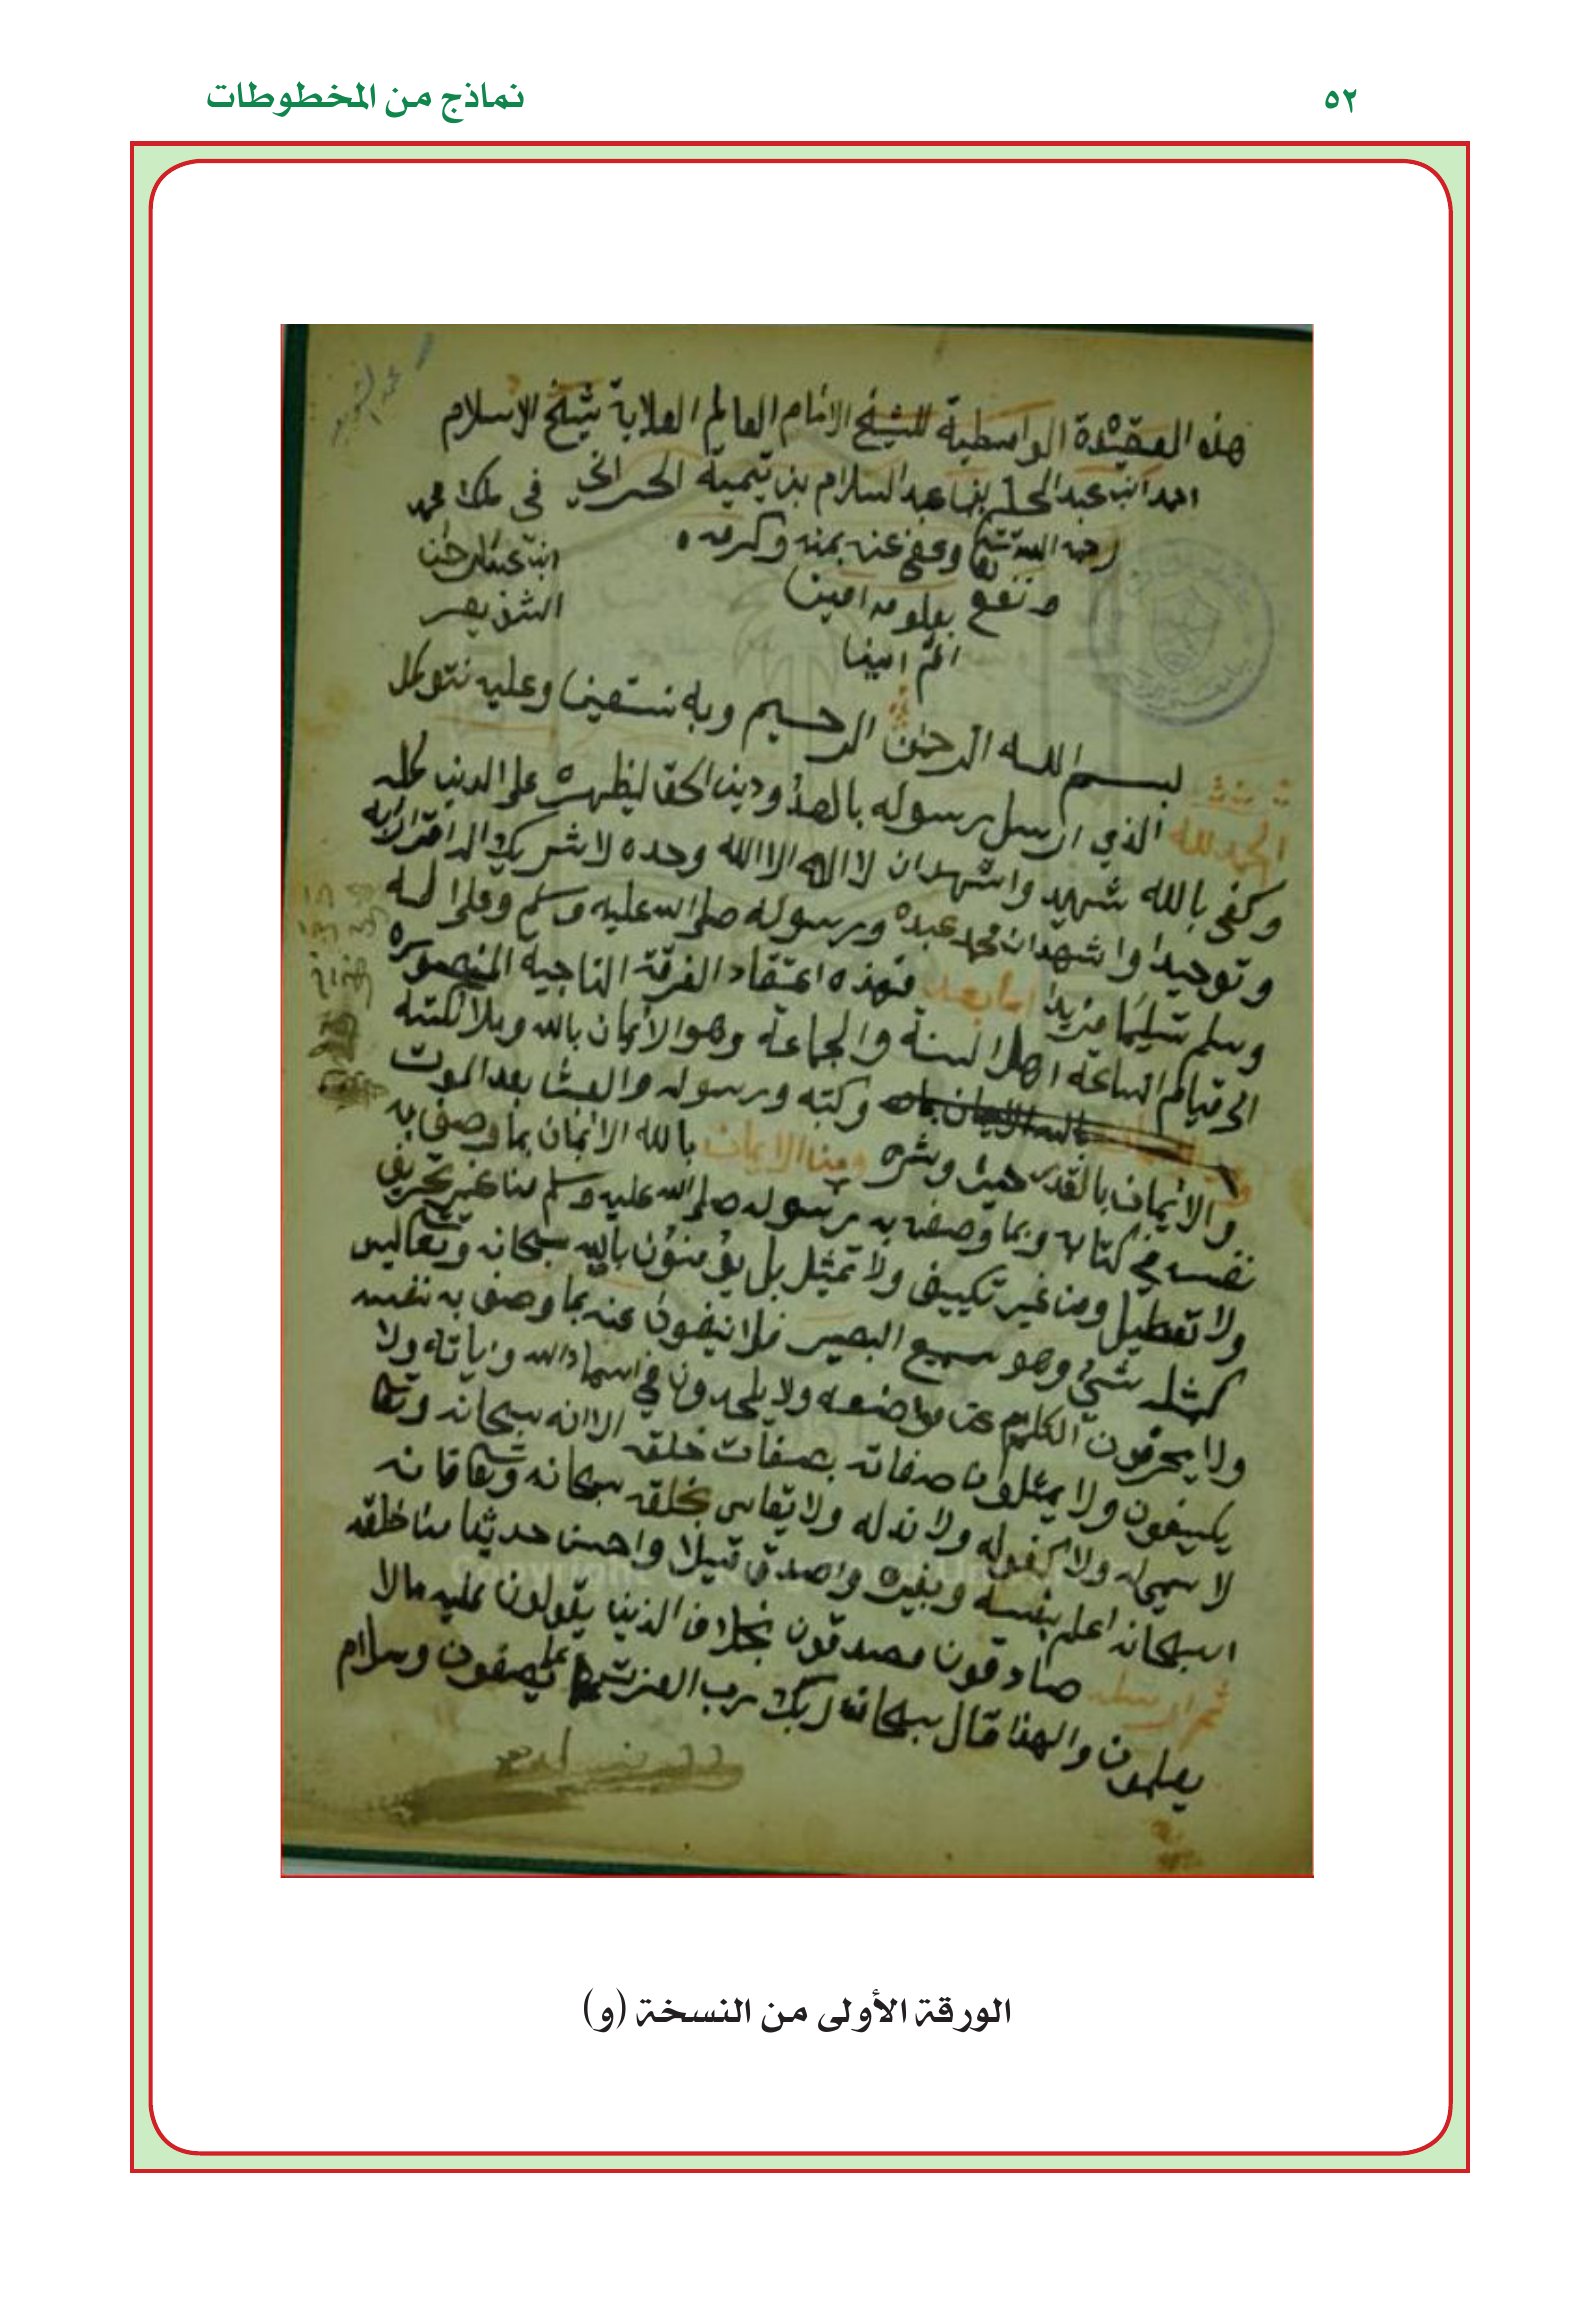 ٥٢
نماذج من المخطوطات
هذه العقيدة الواسطية للشيخ الامام العالم العلامة شيخ الاسلام
احمد ابن عبد الحليم بن عبد السلام بن تيمية الحراني
في ملك محمد
رحمه الله تعالى وعفى عنه بمنه وكرمه
ابن عبد الرحمن
ونفع بعلومه امين
الشويعر
بسم الله الرحمن الرحيم وبه نستعين وعليه نتوكل
الحمد لله الذي ارسل رسوله بالهدى ودين الحق ليظهره على الدين كله
وكفى بالله شهيد واشهد ان لا اله الا الله وحده لا شريك له اقرارا به
وتوحيدا واشهد ان محمد عبده ورسوله صلى الله عليه وسلم وعلى اله
وسلم تسليما مزيدا اما بعد فهذه اعتقاد الفرقة الناجية المنصوره
الى قيام الساعة اهل السنة والجماعة وهو الأيمان بالله وملائكته
وكتبه ورسوله والبعث بعد الموت
والايمان بالقدر خيره وشره ومن الايمان بالله الايمان بما وصف به
نفسه في كتابه وبما وصفه به رسوله صلى الله عليه وسلم من غير تحريف
ولا تعطيل ومن غير تكييف ولا تمثيل بل يؤمنون بالله سبحانه وتعالى ليس
كمثله شئ وهو سميع البصير فلا ينفون عنه بما وصف به نفسه
ولا يحرفون الكلم عن مواضعه ولا يلحدون في اسماء الله واياته ولا
يكيفون ولا يمثلون صفاته بصفات خلقه الا انه سبحانه وتعا
لا سمي له ولا كفو له ولا ند له ولا يقاس بخلقه سبحانه وتعا فانه
سبحانه اعلم بنفسه وبغيره واصدق قيلا واحسن حديثا من خلقه
ثم رسله صادقون مصدقون بخلاف الذين يقولون عليه مالا
يعلمون والهذا قال سبحانه ربك رب العزت عما يصفون وسلام
الورقة الأولى من النسخة (و)